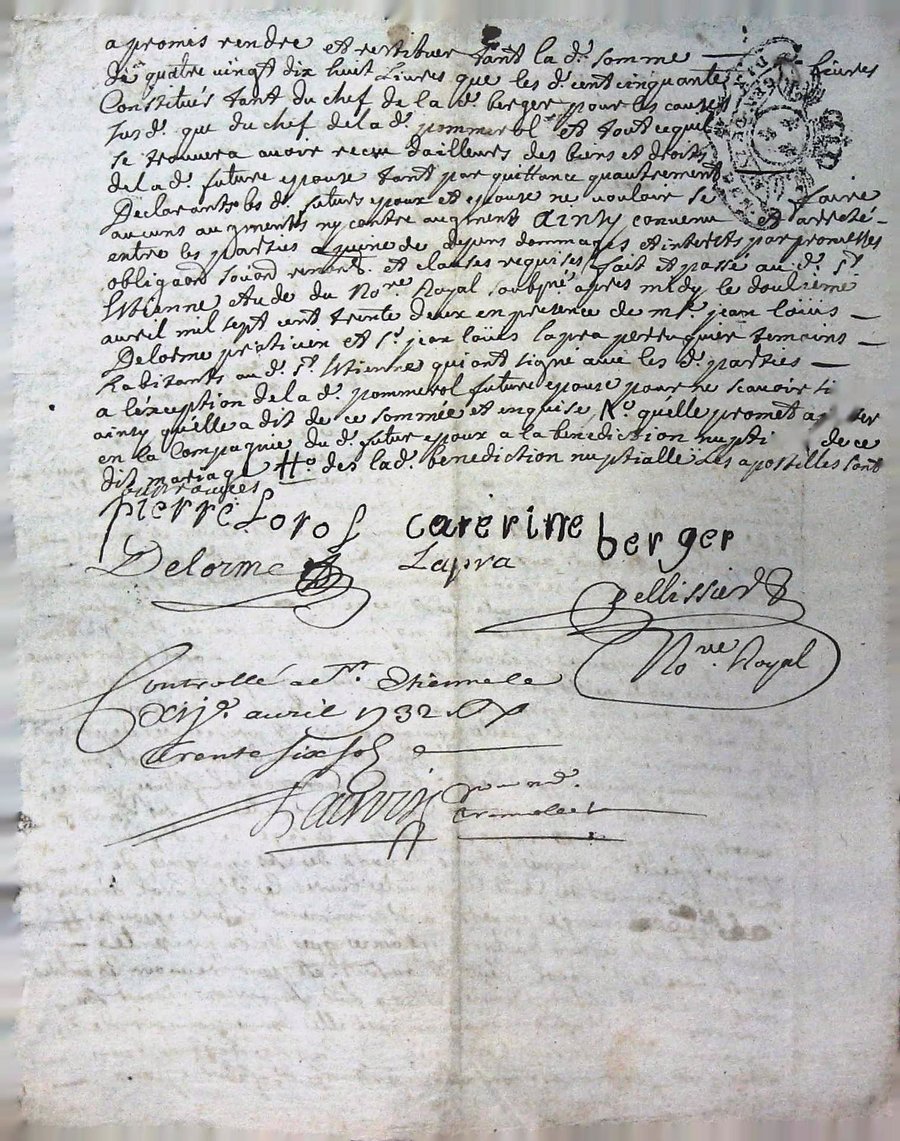 a promis rendre et restituer tant la d.e somme —
de quatre vingt dix huit Livres que les d. cent cinquante Livres
Constitués tant du chef de la d.e berger pour les causes
susd. que du chef de la d. pommerol et tout ce quil
se trouvera avoir recu dailleurs des biens et droits
de la d. future epouse tant par quittance quautrement
Declarants les d. futurs epoux et epouse ne vouloir se faire
aucuns augments ny contre augment Ainsy convenu et arreté —
entre les parties a peine de depens dommages et interets par promesses
obligaon soumon renonon. et clauses requises fait et passé au d. St
Etienne etude du No.re Royal soubné apres midy le douzieme
avril mil sept cent trente deux en presence de m.e jean Loüis —
Delorme praticien et s.r jean Loüis Lapra perruquier temoins —
habitants au d. St. Etienne qui ont signé avec les d. parties —
a lexception de la d. pommerol future epouse pour ne scavoir si
ainsy quelle a dit de ce sommée et enquise, quelle promet
en la Compagnie du d. futur epoux a la benediction nupti de ce
dit mariage de la d. benediction nuptialle Les apostilles sont
approuvées
pierre Loros caterine berger
Delorme Lapra
pellissier
No.re Royal
Controllé a St. Etienne le
xije. avril 1732
trente six sols